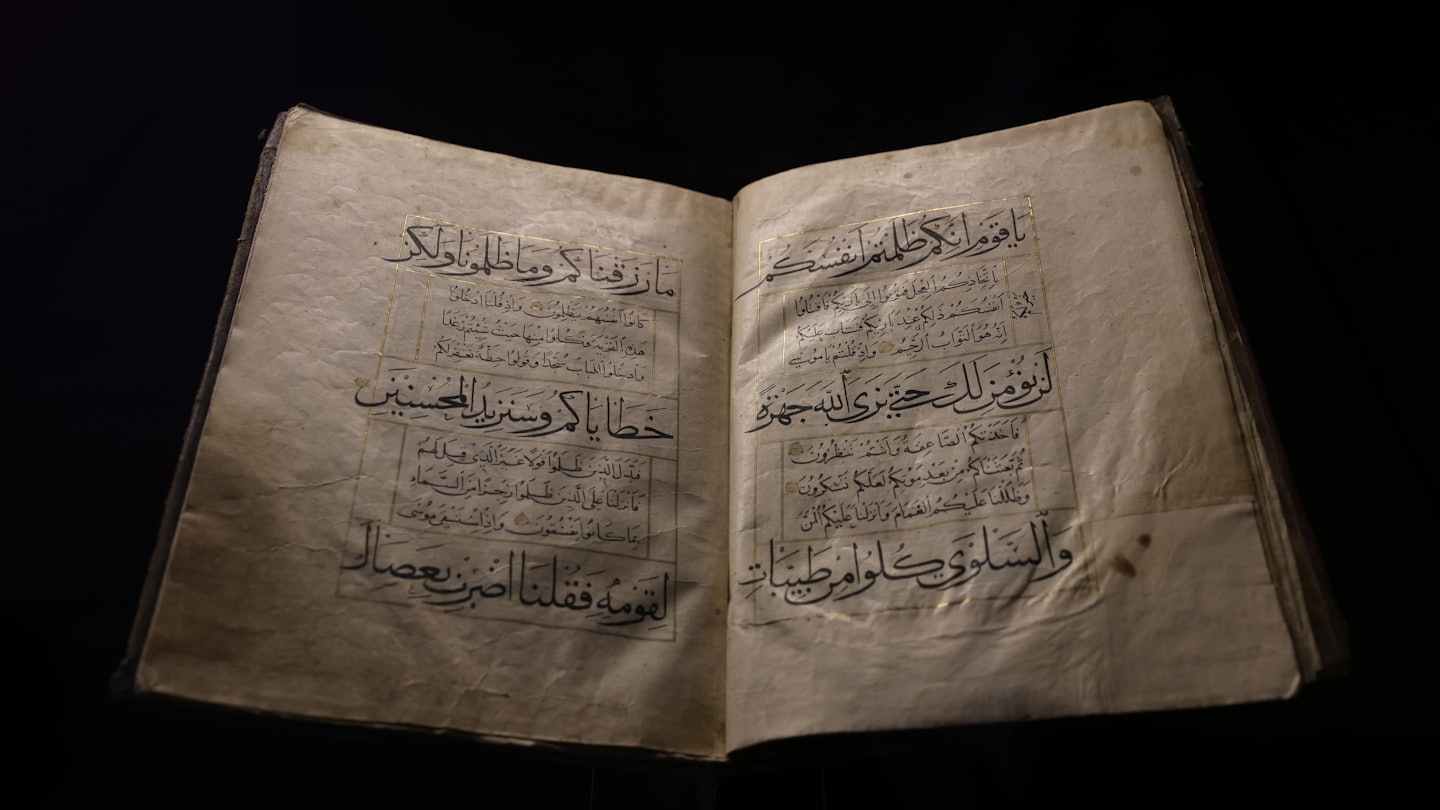 يَا قَوْمِ إِنَّكُمْ ظَلَمْتُمْ أَنفُسَكُمْ
بِاتِّخَاذِكُمُ الْعِجْلَ فَتُوبُوا إِلَى بَارِئِكُمْ فَاقْتُلُوا
أَنفُسَكُمْ ذَلِكُمْ عِندَ بَارِئِكُمْ فَتَابَ عَلَيْكُمْ
إِنَّهُ هُوَ التَّوَّابُ الرَّحِيمُ وَإِذْ قُلْتُمْ يَا مُوسَى
لَن نُّؤْمِنَ لَكَ حَتَّى نَرَى اللَّهَ جَهْرَةً
فَأَخَذَتْكُمُ الصَّاعِقَةُ وَأَنتُمْ تَنظُرُونَ
ثُمَّ بَعَثْنَاكُم مِّن بَعْدِ مَوْتِكُمْ لَعَلَّكُمْ تَشْكُرُونَ
وَظَلَّلْنَا عَلَيْكُمُ الْغَمَامَ وَأَنزَلْنَا عَلَيْكُمُ الْمَنَّ
وَالسَّلْوَى كُلُوا مِن طَيِّبَاتِ
مَا رَزَقْنَاكُمْ وَمَا ظَلَمُونَا وَلَكِن
كَانُوا أَنفُسَهُمْ يَظْلِمُونَ وَإِذْ قُلْنَا ادْخُلُوا
هَذِهِ الْقَرْيَةَ فَكُلُوا مِنْهَا حَيْثُ شِئْتُمْ رَغَدًا
وَادْخُلُوا الْبَابَ سُجَّدًا وَقُولُوا حِطَّةٌ نَّغْفِرْ لَكُمْ
خَطَايَاكُمْ وَسَنَزِيدُ الْمُحْسِنِينَ
فَبَدَّلَ الَّذِينَ ظَلَمُوا قَوْلًا غَيْرَ الَّذِي قِيلَ لَهُمْ
فَأَنزَلْنَا عَلَى الَّذِينَ ظَلَمُوا رِجْزًا مِّنَ السَّمَاءِ
بِمَا كَانُوا يَفْسُقُونَ وَإِذِ اسْتَسْقَى مُوسَى
لِقَوْمِهِ فَقُلْنَا اضْرِب بِّعَصَاكَ